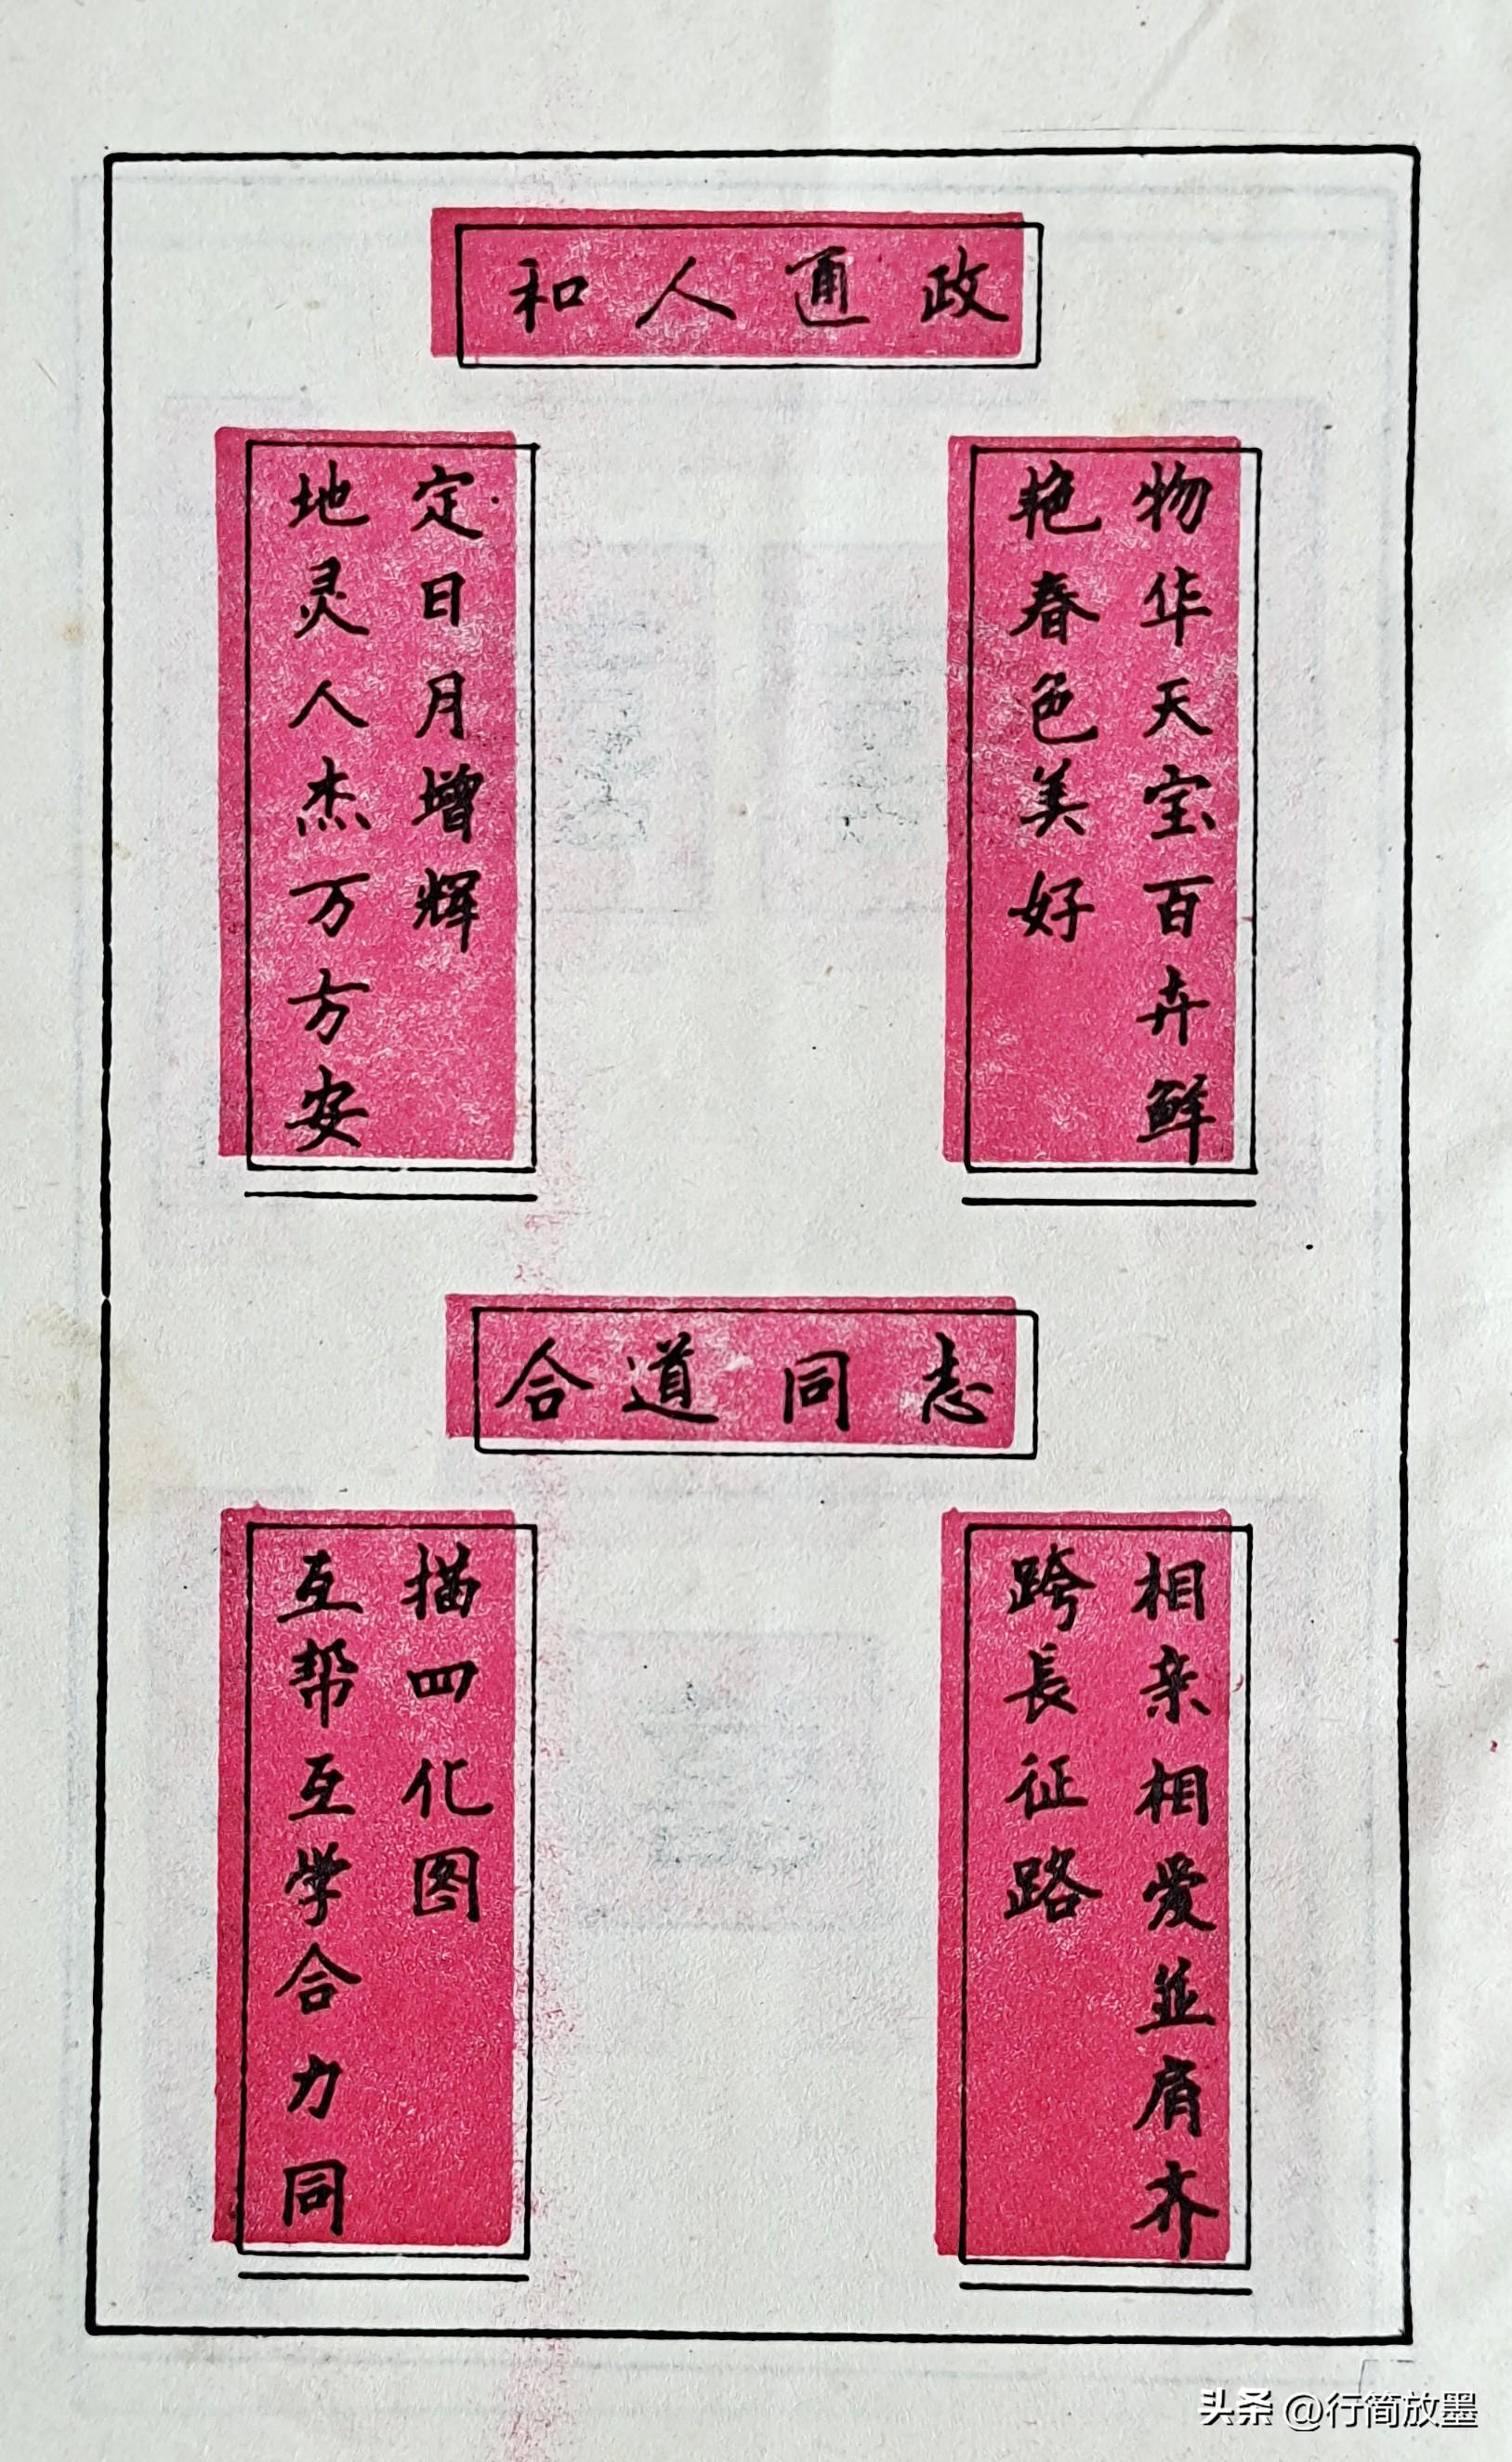 政通人和
物华天宝百卉鲜
艳春色美好
地灵人杰万方安
定日月增辉
志同道合
相亲相爱並肩齐
跨長征路
互帮互学合力同
描四化图
头条 @行简放墨